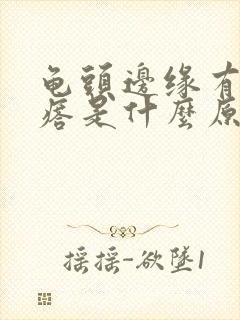 龟頭邊缘有
痞是什麼原
摇摇-欲墜1